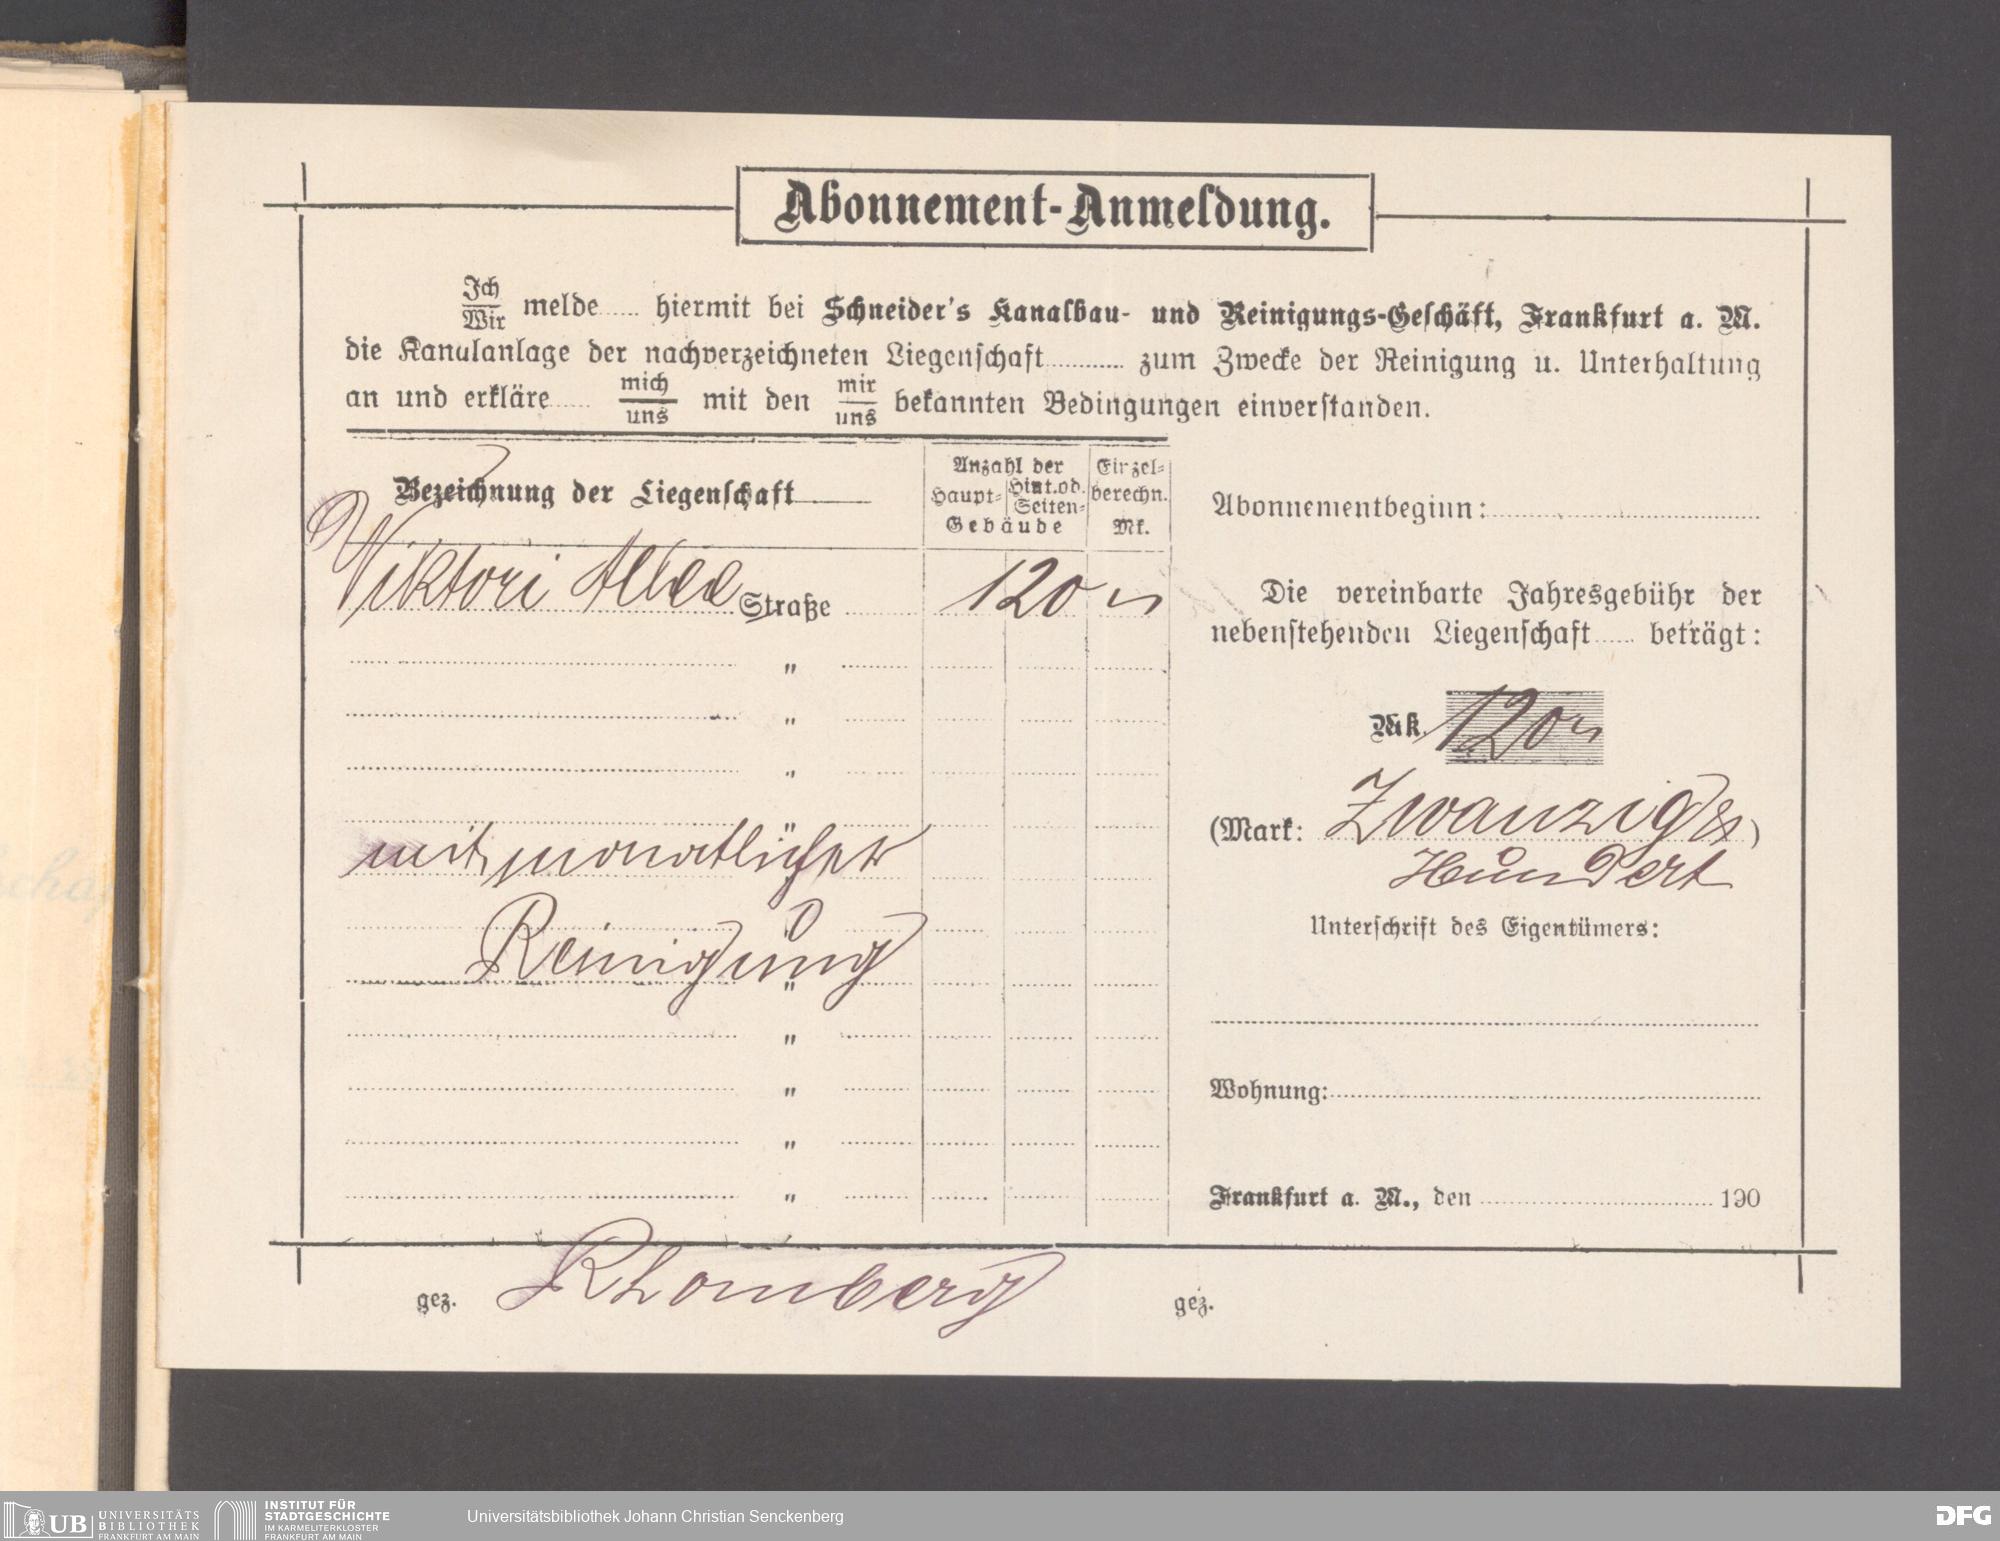 Abonnement-Anmeldung.
Ich
Wir melde..... hiermit bei Schneider's Kanalbau- und Reinigungs-Geschäft, Frankfurt a. M.
die Kanalanlage der nachverzeichneten Liegenschaft............ zum Zwecke der Reinigung u. Unterhaltung
an und erkläre..... mich
uns mit den mir
uns bekannten Bedingungen einverstanden.
Bezeichnung der Liegenschaft
Anzahl der
Haupt- Hint.od. Seiten-
Gebäude
Einzel-
berechn.
Mk.
Viktori Allee Straße 120
"
"
"
"
mit monatlicher
Reinigung
"
"
"
"
"
Abonnementbeginn:
Die vereinbarte Jahresgebühr der
nebenstehenden Liegenschaft..... beträgt:
Mk. 120
(Mark: Zwanzig & )
Hundert
Unterschrift des Eigentümers:
Wohnung:
Frankfurt a. M., den 190
gez. Rhomberg
gez.
UB UNIVERSITÄTS
BIBLIOTHEK
FRANKFURT AM MAIN
INSTITUT FÜR
STADTGESCHICHTE
IM KARMELITERKLOSTER
FRANKFURT AM MAIN
Universitätsbibliothek Johann Christian Senckenberg
DFG